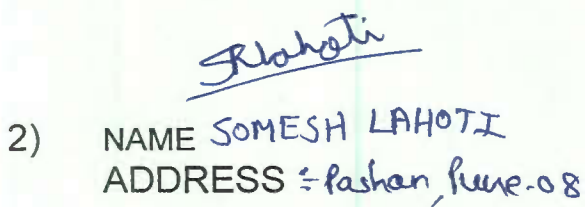 SRLahoti
2) NAME SOMESH LAHOTI
ADDRESS :- Pashan, Pune-08